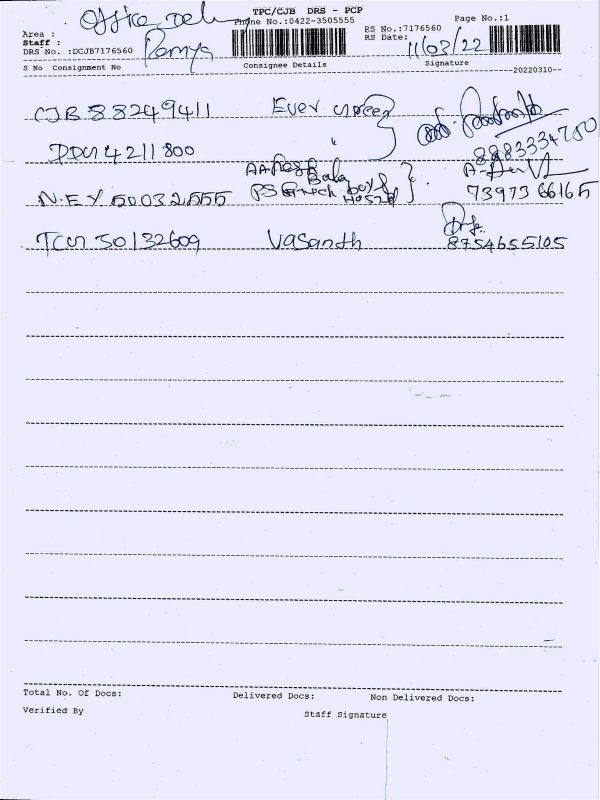 Office Del
TPC/CJB DRS - PCP
Phone No.:0422-3505555
Page No.:1
Area :
Staff : Ramya
DRS No. :DCJB7176560
RS No.:7176560
RS Date: 11/03/22
S No Consignment No Consignee Details Signature
--20220310--
CJB 88249411 Ever
8883334700
DDM 4211800 "
NEY 50032555 Bala
PSG Tech boys Hostel
73973 66165
TCM 50132609 Vasanth
8754655105
Total No. Of Docs: Delivered Docs: Non Delivered Docs:
Verified By Staff Signature